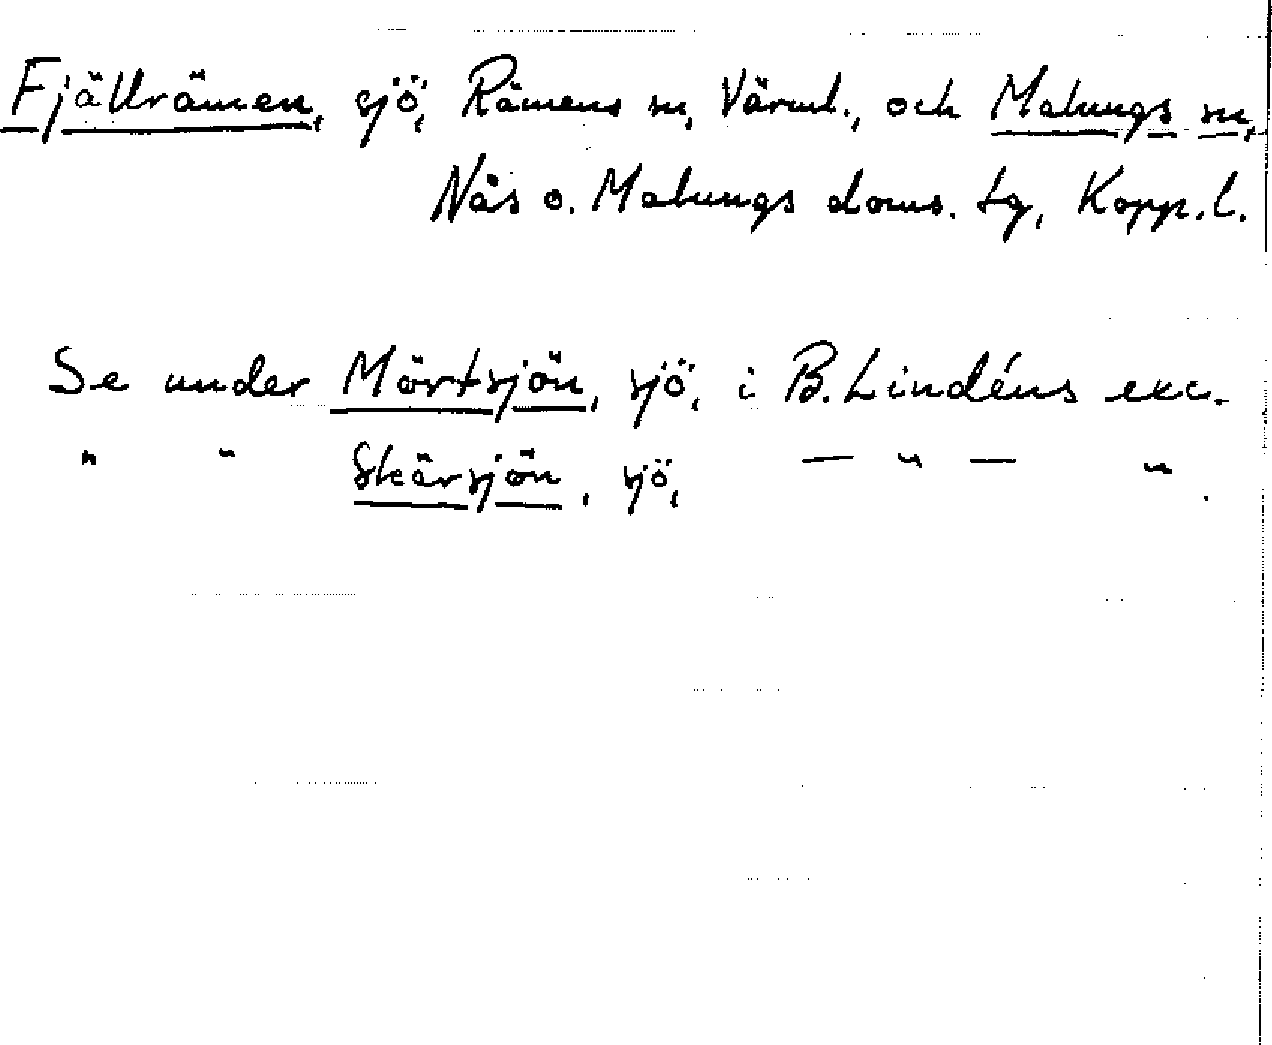 Fjällrämen, sjö, Rämens sn, Värml., och Malungs sn,
Nås o. Malungs doms. tg, Kopp. l.
Se under Mörtsjön, sjö, i B. Lindéns exc.
" " Skärsjön, sjö, — " — " .